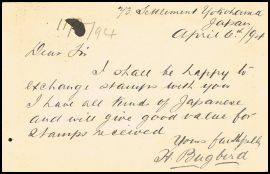 73, Settlement Yokohama
Japan
April 6th/94
11/5/94
Dear Sir
I shall be happy to
exchange stamps with you
I have all kinds of Japanese
and will give good value for
stamps received
Yours faithfully
H. Bugbird